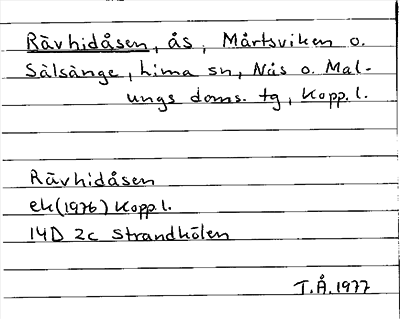 Rävhidåsen, ås, Mårtsviken o.
Sälsänge, Lima sn, Nås o. Mal-
ungs doms. tg, Kopp. l.
Rävhidåsen
ek (1976) Kopp. l.
14D 2c Strandkölen
T.Å. 1977